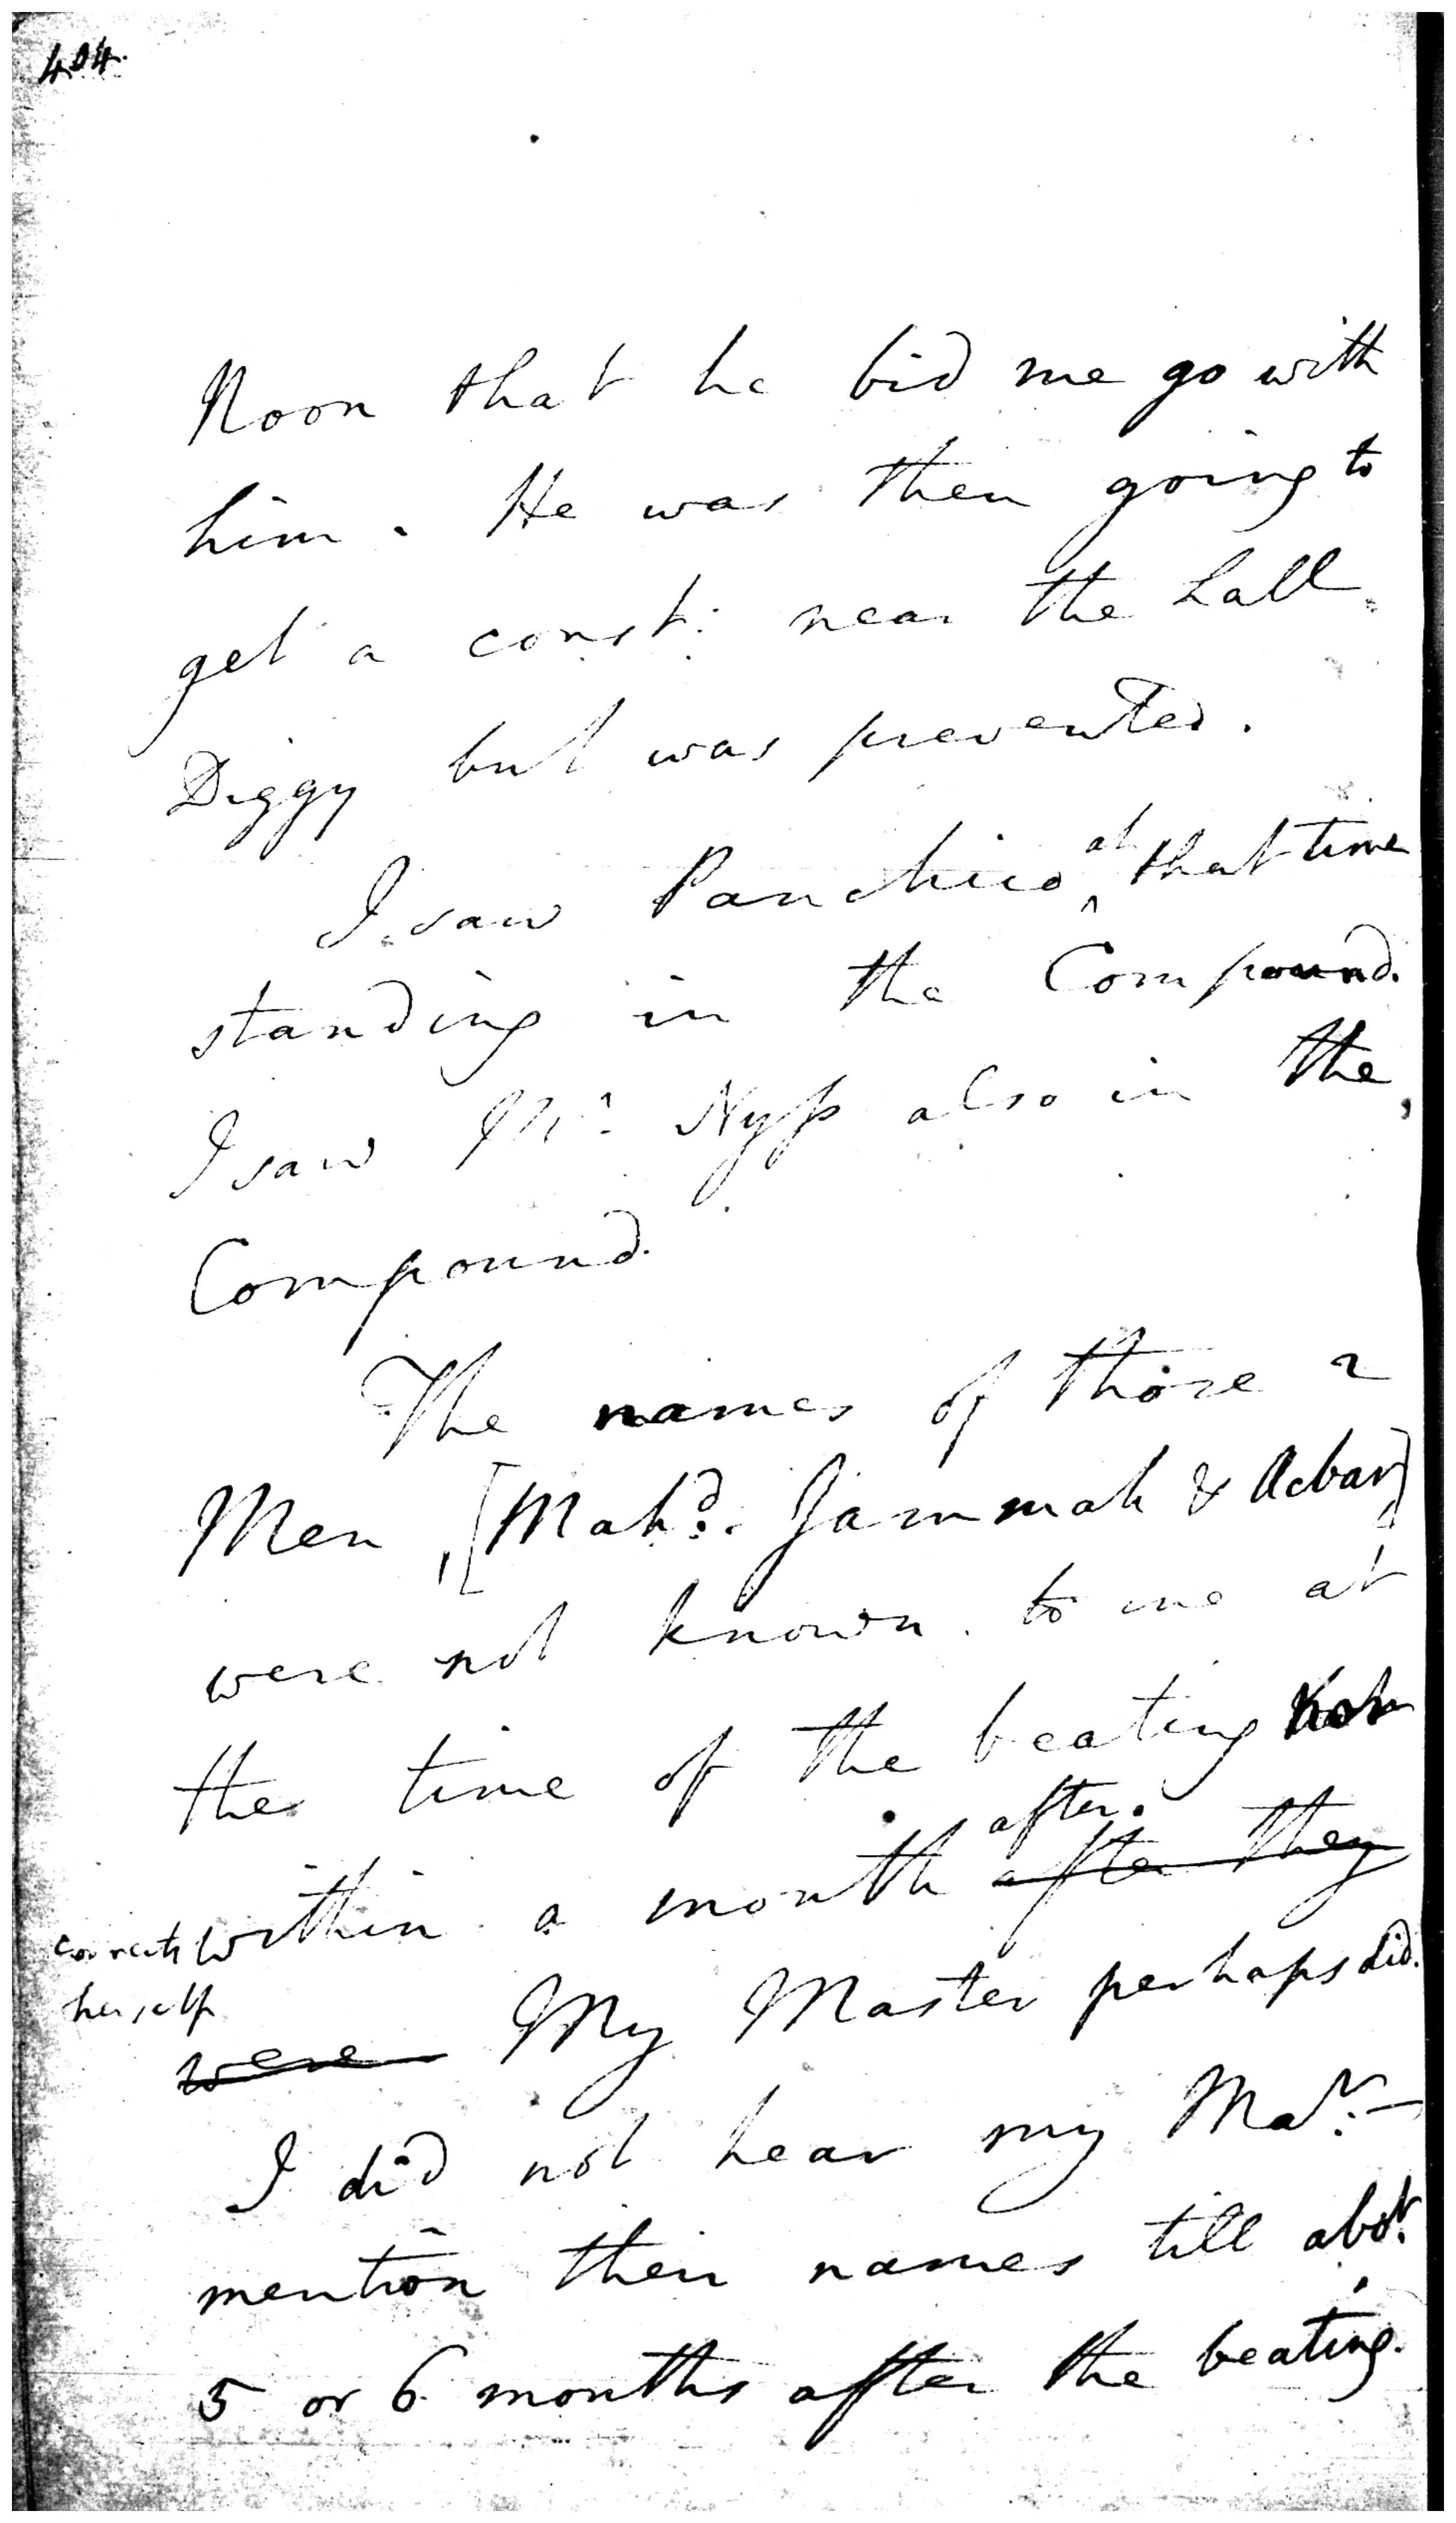 404.
Noon that he bid me go with
him. He was then going to
get a const: near the Lall
Diggy but was prevented.
I saw Panchico at that time
standing in the Compound.
I saw Mr. Nyss also in the
Compound.
The names of those 2
Men, [Mahd. Jammah & Acbar]
were not known to me at
the time of the beating Nor
within a month after. after they
corrects
herself
were My Master perhaps did.
I did not hear my Mar.
mention their names till abot.
5 or 6 months after the beating.